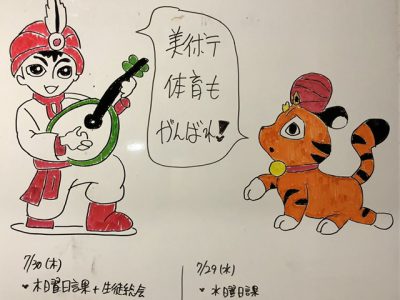 美術テ
体育も
がんばれ!
7/30 (木)
• 木曜日課 + 生徒総会
7/29 (水)
• 水曜日課